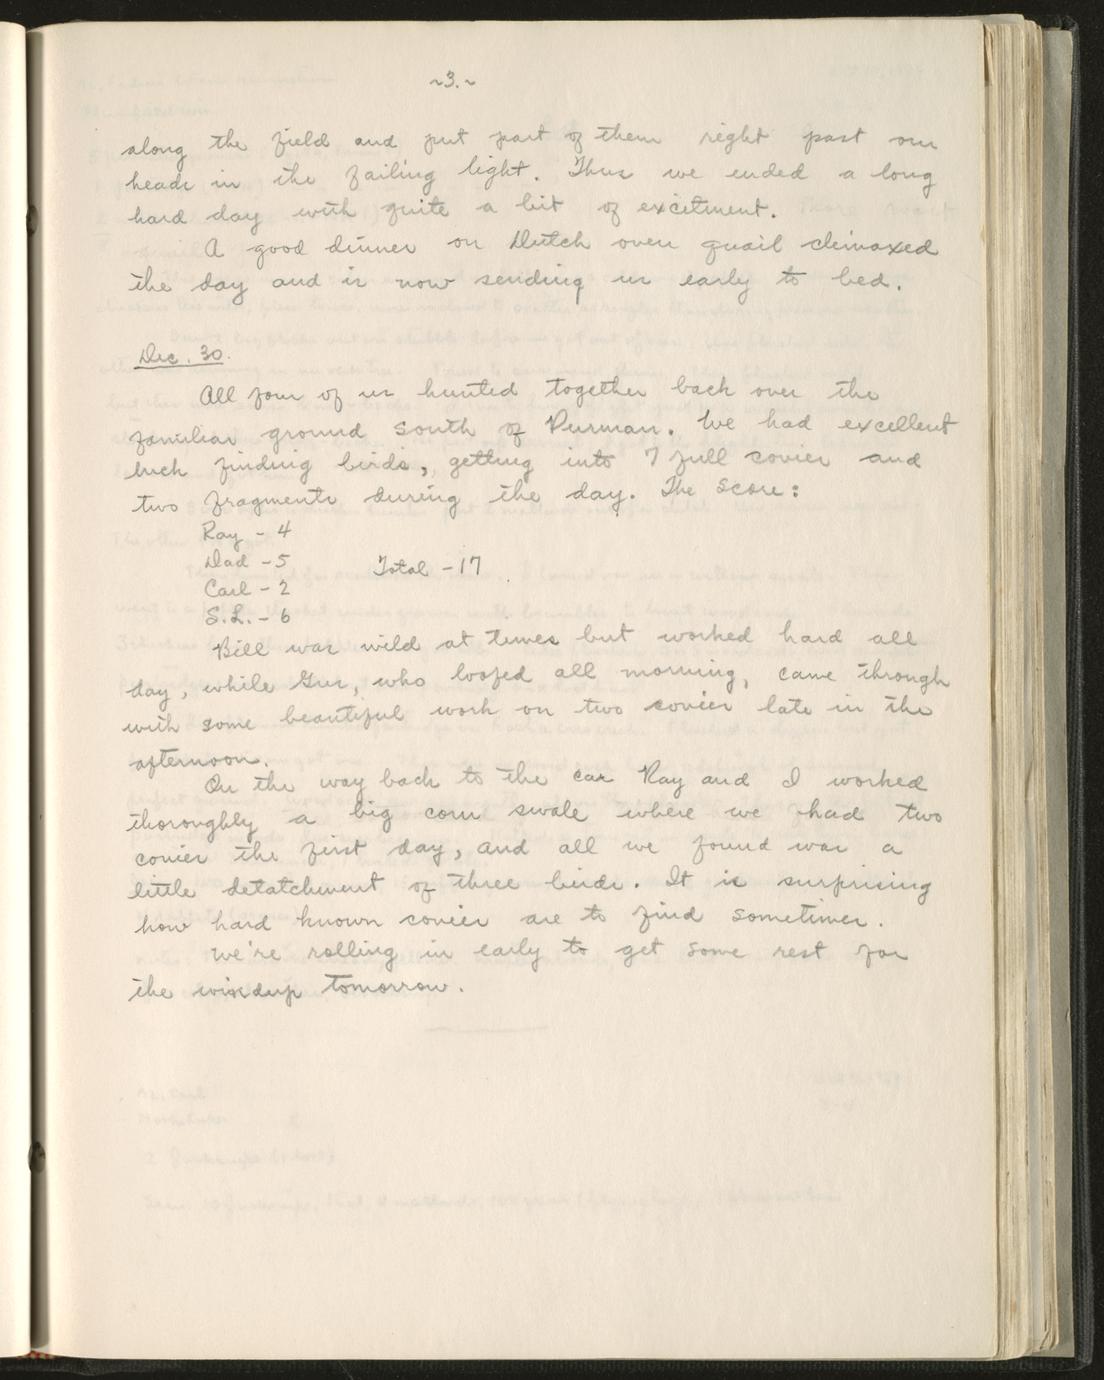 ~3.~
along the field and put part of them right past our
heads in the failing light. Thus we ended a long
hard day with quite a bit of excitment.
A good dinner on Dutch oven quail climaxed
the day and is now sending us early to bed.
Dec. 30.
All four of us hunted together back over the
familiar ground south of Purman. We had excellent
luck finding birds, getting into 7 full covies and
two fragments during the day. The score:
Ray - 4
Dad - 5 Total - 17
Carl - 2
S.L. - 6
Bill was wild at times but worked hard all
day, while Gus, who loafed all morning, came through
with some beautiful work on two covies late in the
afternoon.
On the way back to the car Ray and I worked
thoroughly a big corn swale where we had two
covies the first day, and all we found was a
little detatchment of three birds. It is surprising
how hard known covies are to find sometimes.
We're rolling in early to get some rest for
the windup tomorrow.